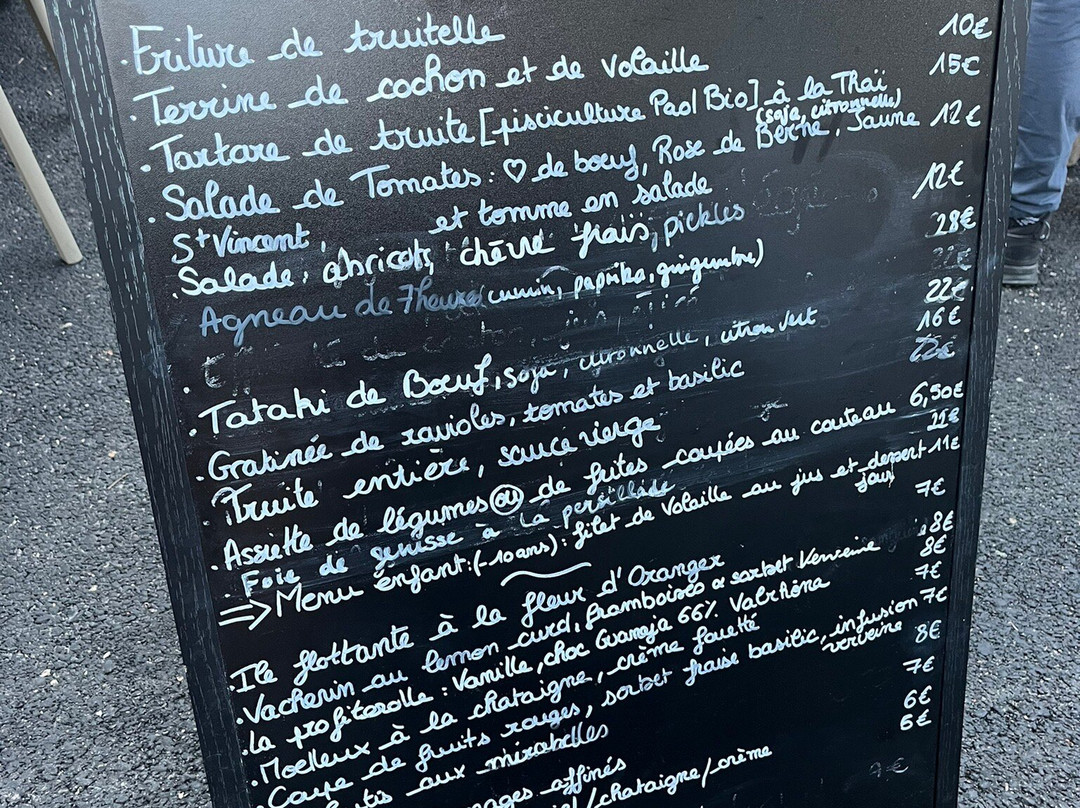 . Friture de truitelle 10€
. Terrine de cochon et de volaille 15€
. Tartare de truite [pisciculture Paol Bio] à la Thaï (soja, citronnelle) 12€
. Salade de Tomates : ♡ de boeuf, Rose de Berne, Jaune
St Vincent, et tomme en salade 12€
. Salade : abricots, chèvre frais, pickles 28€
Agneau de 7 heures (cumin, paprika, gingembre)
. Tataki de Boeuf, soja, citronnelle, citron vert 22€
. Gratinée de ravioles, tomates et basilic 16€
. Truite entière, sauce vierge 22€
. Assiette de légumes ou de frites coupées au couteau 6,50€
. Foie de genisse à la persillade 21€
⇒ Menu enfant : (-10ans) : filet de volaille au jus et dessert jour 11€
. Ile flottante à la fleur d'Oranger 7€
. Vacherin au lemon curd, framboises & sorbet Verveine 8€
. La profiterolle : Vanille, choc Guanaja 66% Valrhôna 8€
. Moelleux à la chataigne, crème fouetté 7€
. Coupe de fruits rouges, sorbet fraise basilic, infusion verveine 7€
aux mirabelles 8€
affinés 7€
/chataigne/crème 6€
6€